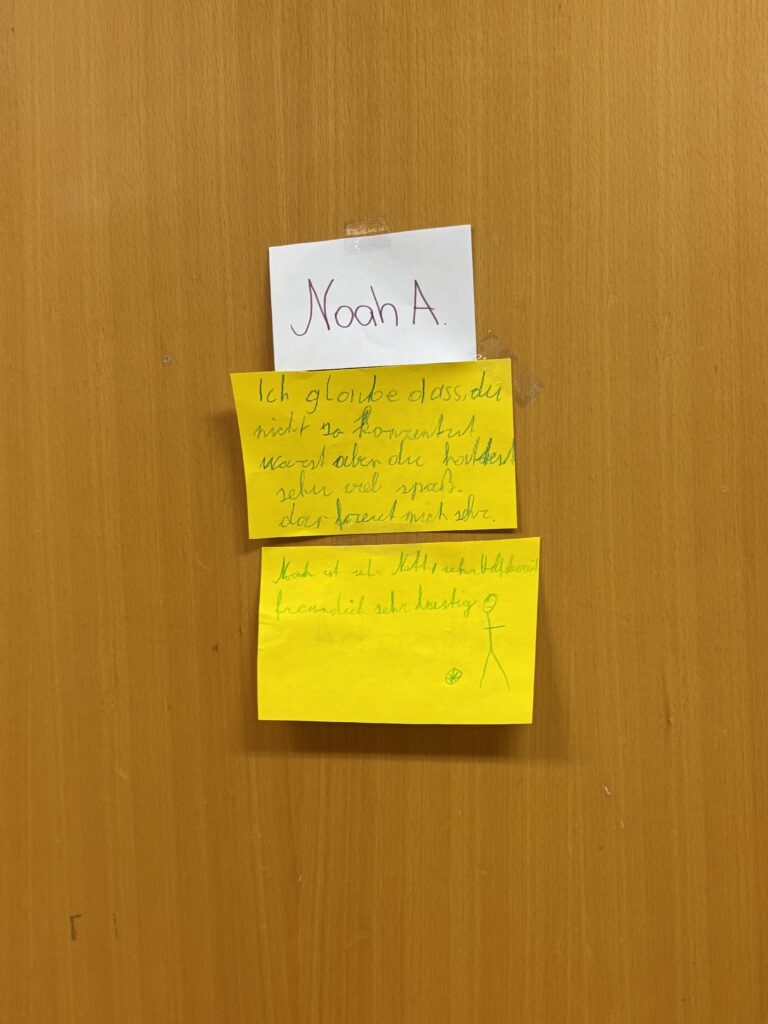 Noah A.
Ich glaube dass, du
nicht so konzentrit
warst aber du hattest
sehr viel spaß.
das freut mich sehr.
Noah ist sehr Nett, sehr Hilfsbereit
freundlich sehr lustig